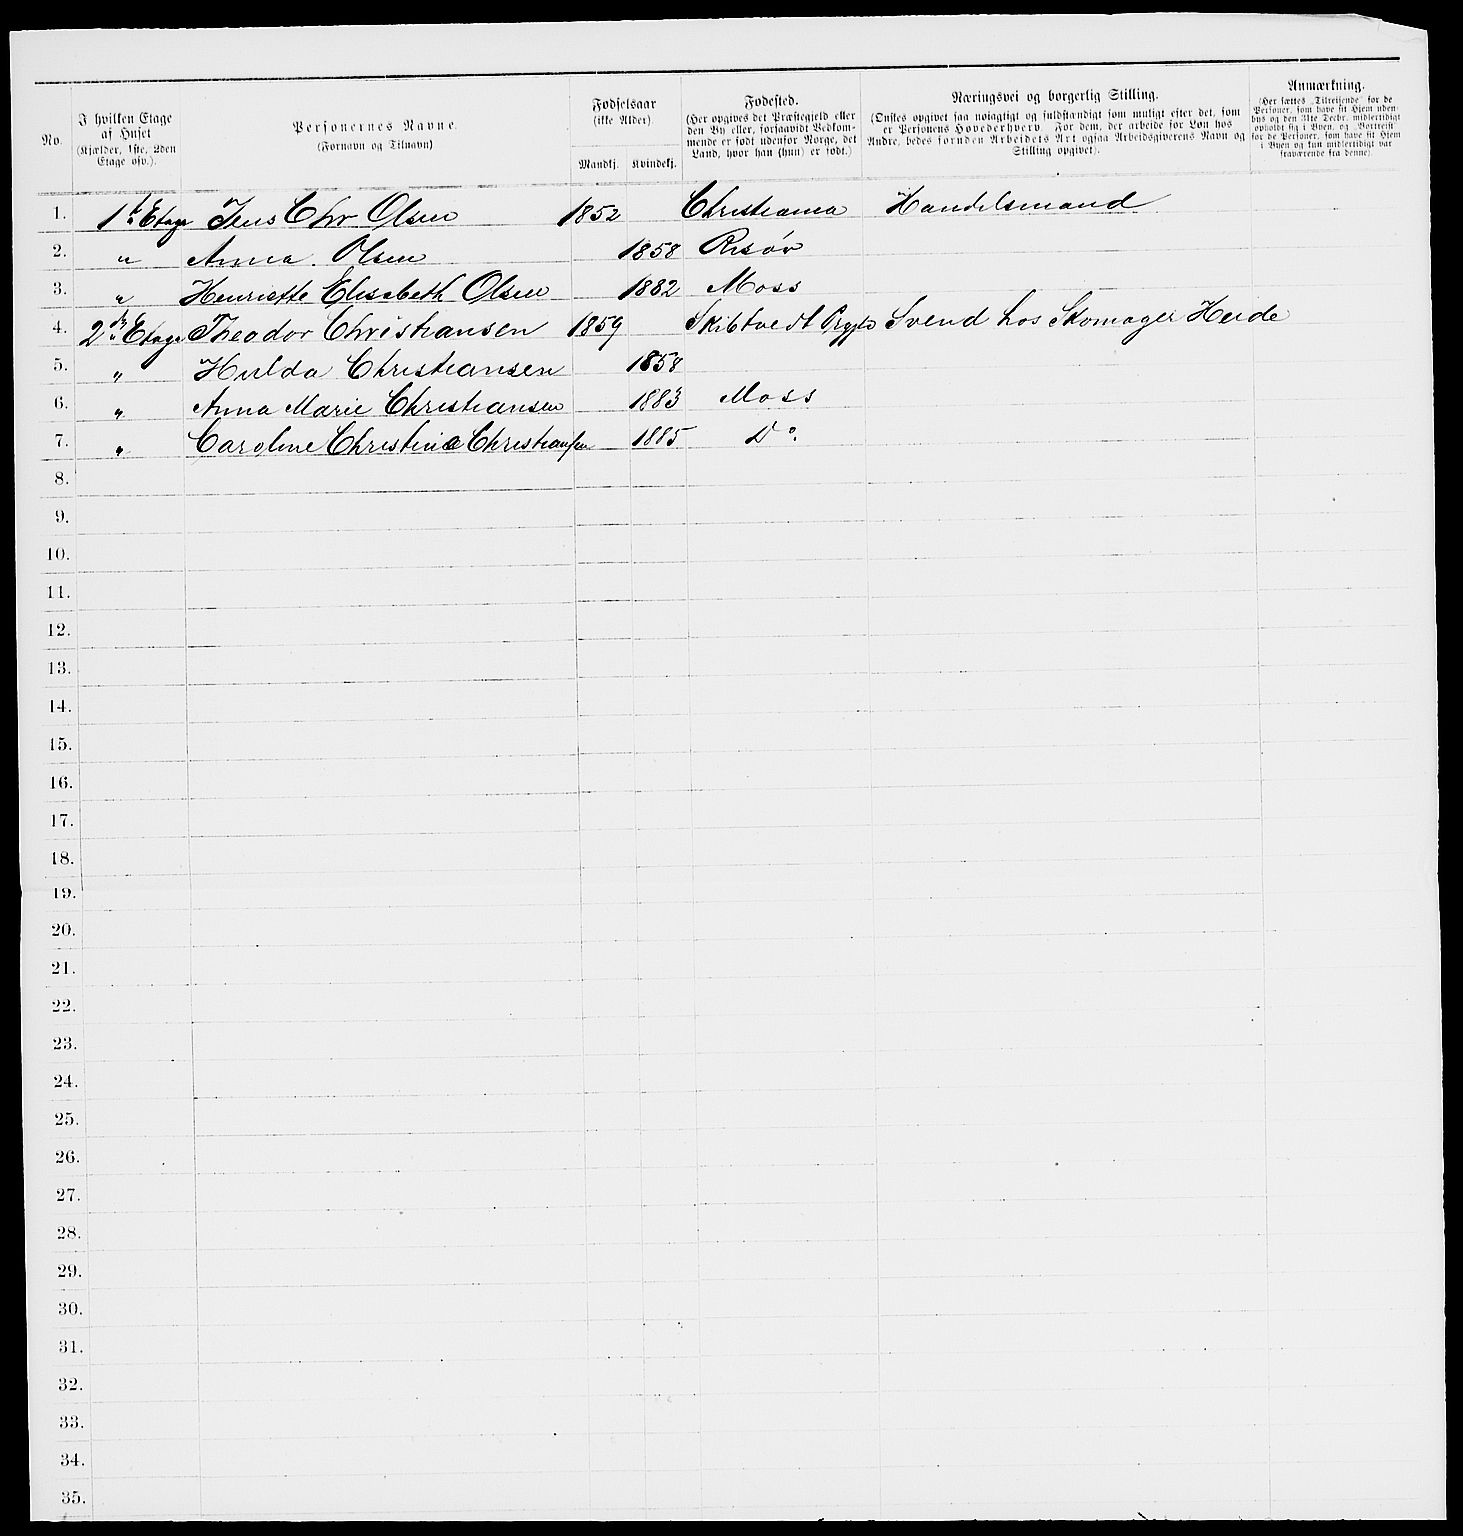 No.
I hvilken Etage
af Huset
(Kjælder, 1ste, 2den
Etage osv.).
Personernes Navne.
(Fornavn og Tilnavn)
Fødselsaar
(ikke Alder).
Mandkj. Kvindekj.
Fødested.
(Her opgives det Præstegjeld eller
den By eller, forsaavidt Vedkom-
mende er født udenfor Norge, det
Land, hvor han (hun) er født.)
Næringsvei og borgerlig Stilling.
(Ønskes opgivet saa nøiagtigt og fuldstændigt som muligt efter det, som
er Personens Hovederhverv. For dem, der arbeide for Løn hos
Andre, bedes foruden Arbeidets Art ogsaa Arbeidsgiverens Navn og
Stilling opgivet).
Anmærkning.
(Her sættes „Tilreisende" for de
Personer, som have sit Hjem uden-
bys og den 31te Decbr. midlertidigt
opholdt sig i Byen, og „Bortreist"
for de Personer, som have sit Hjem
i Byen og kun midlertidigt var
fraværende fra denne).
1. 1ste Etage Jens Chr Olsen 1852 Christiania Handelsmand
2. " Anna Olsen 1858 Risør
3. " Henriette Elisabeth Olsen 1882 Moss
4. 2den Etage Theodor Christiansen 1859 Skibtvedt Prgjld Svend hos Skomager Heide
5. " Hulda Christiansen 1858
6. " Anna Marie Christiansen 1883 Moss
7. " Caroline Christine Christiansen 1885 Do.
8.
9.
10.
11.
12.
13.
14.
15.
16.
17.
18.
19.
20.
21.
22.
23.
24.
25.
26.
27.
28.
29.
30.
31.
32.
33.
34.
35.